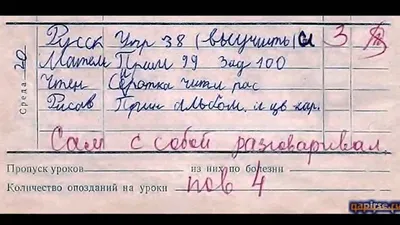 Среда 20
Русск Упр 38 (выучить) 3
Матем Прим 99 Зад 100
Чтен читат рас
Рисов Прин альбом. и цв кар.
Сам с собой разговаривал.
Пропуск уроков из них по болезни
Количество опозданий на уроки пов 4